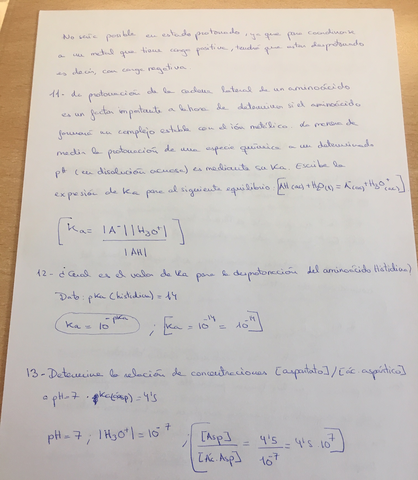 No sería posible en estado protonado, ya que para coordinarse
a un metal que tiene carga positiva, tendrá que estar desprotonado
es decir, con carga negativa
11- La protonación de la cadena lateral de un aminoácido
es un factor importante a la hora de determinar si el aminoácido
formará un complejo estable con el ión metálico. La manera de
medir la protonación de una especie química a un determinado
pH (en disolución acuosa) es mediante su Ka. Escribe la
expresión de Ka para el siguiente equilibrio [AH(ac) + H2O(l) = A-(ac) + H3O+(ac)]
[Ka = |A-| |H3O+|
|AH| ]
12- ¿Cuál es el valor de Ka para la desprotonación del aminoácido histidina?
Dato: pKa (histidina) = 14
Ka = 10^-pKa ; [Ka = 10^-14 = 10^-14]
13- Determine la relación de concentraciones [aspartato] / [ác aspártico]
a pH = 7 · pKa(asp) = 4'5
pH = 7 ; |H3O+| = 10^-7 ; [ [Asp] / [Ác. Asp] = 4'5 / 10^-7 = 4'5 · 10^7 ]